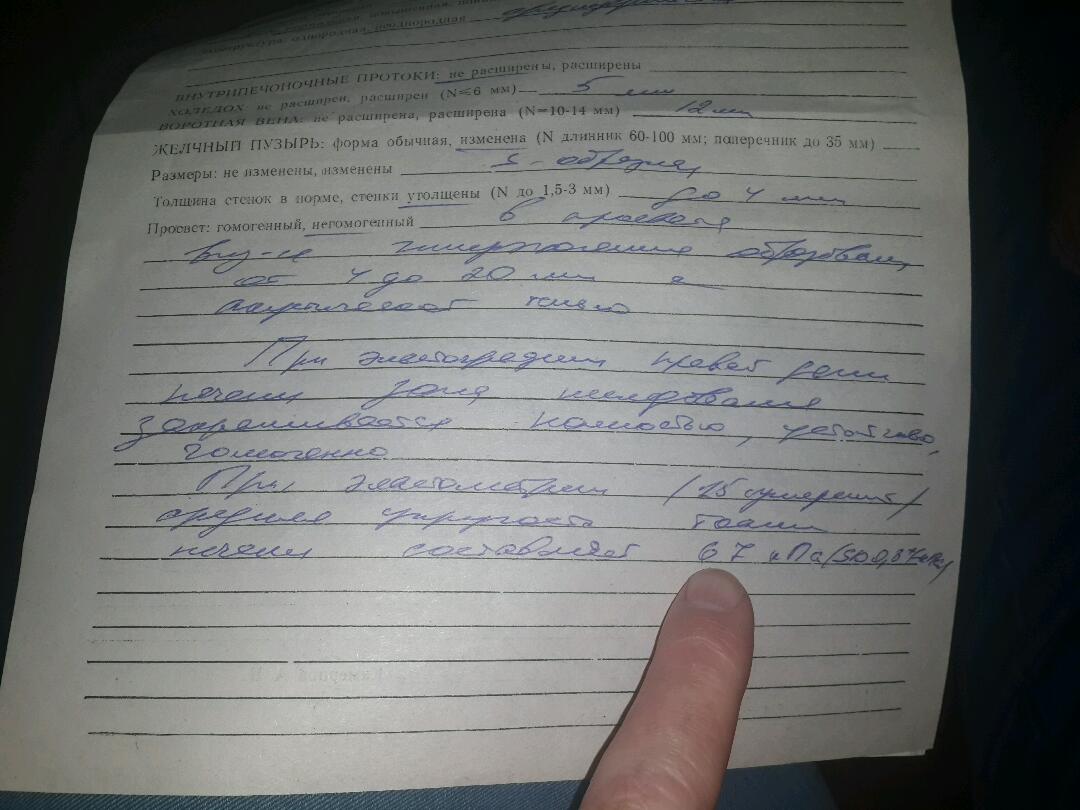 структура: однородная, неоднородная
ВНУТРИПЕЧОНОЧНЫЕ ПРОТОКИ: не расширены, расширены
ХОЛЕДОХ: не расширен, расширен (N⩽6 мм) 5 мм
ВОРОТНАЯ ВЕНА: не расширена, расширена (N=10-14 мм) 12 мм
ЖЕЛЧНЫЙ ПУЗЫРЬ: форма обычная, изменена (N длинник 60-100 мм; поперечник до 35 мм)
Размеры: не изменены, изменены S-образная
Толщина стенок в норме, стенки утолщены (N до 1,5-3 мм) до 4 мм
Просвет: гомогенный, негомогенный в просвете
от 4 до 20 мм с
акустической тенью
При эластографии правой доли
печени зона
закрашивается полностью,
гомогенно
При эластометрии (15 измерений)
средняя упругость ткани
печени составляет 6 7 кПа